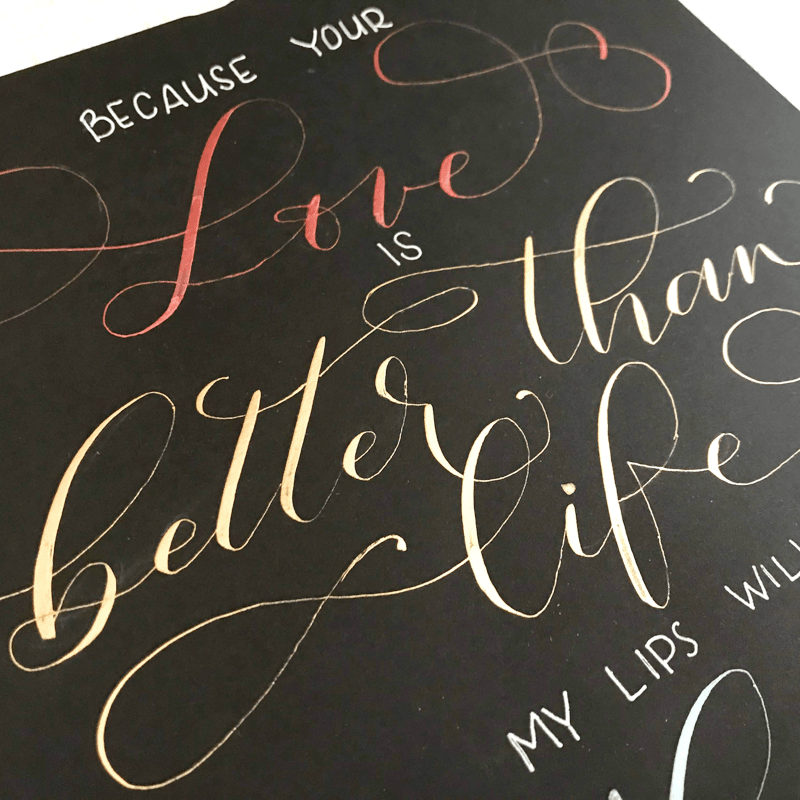 BECAUSE YOUR
Love
IS
better than
life
MY LIPS WILL